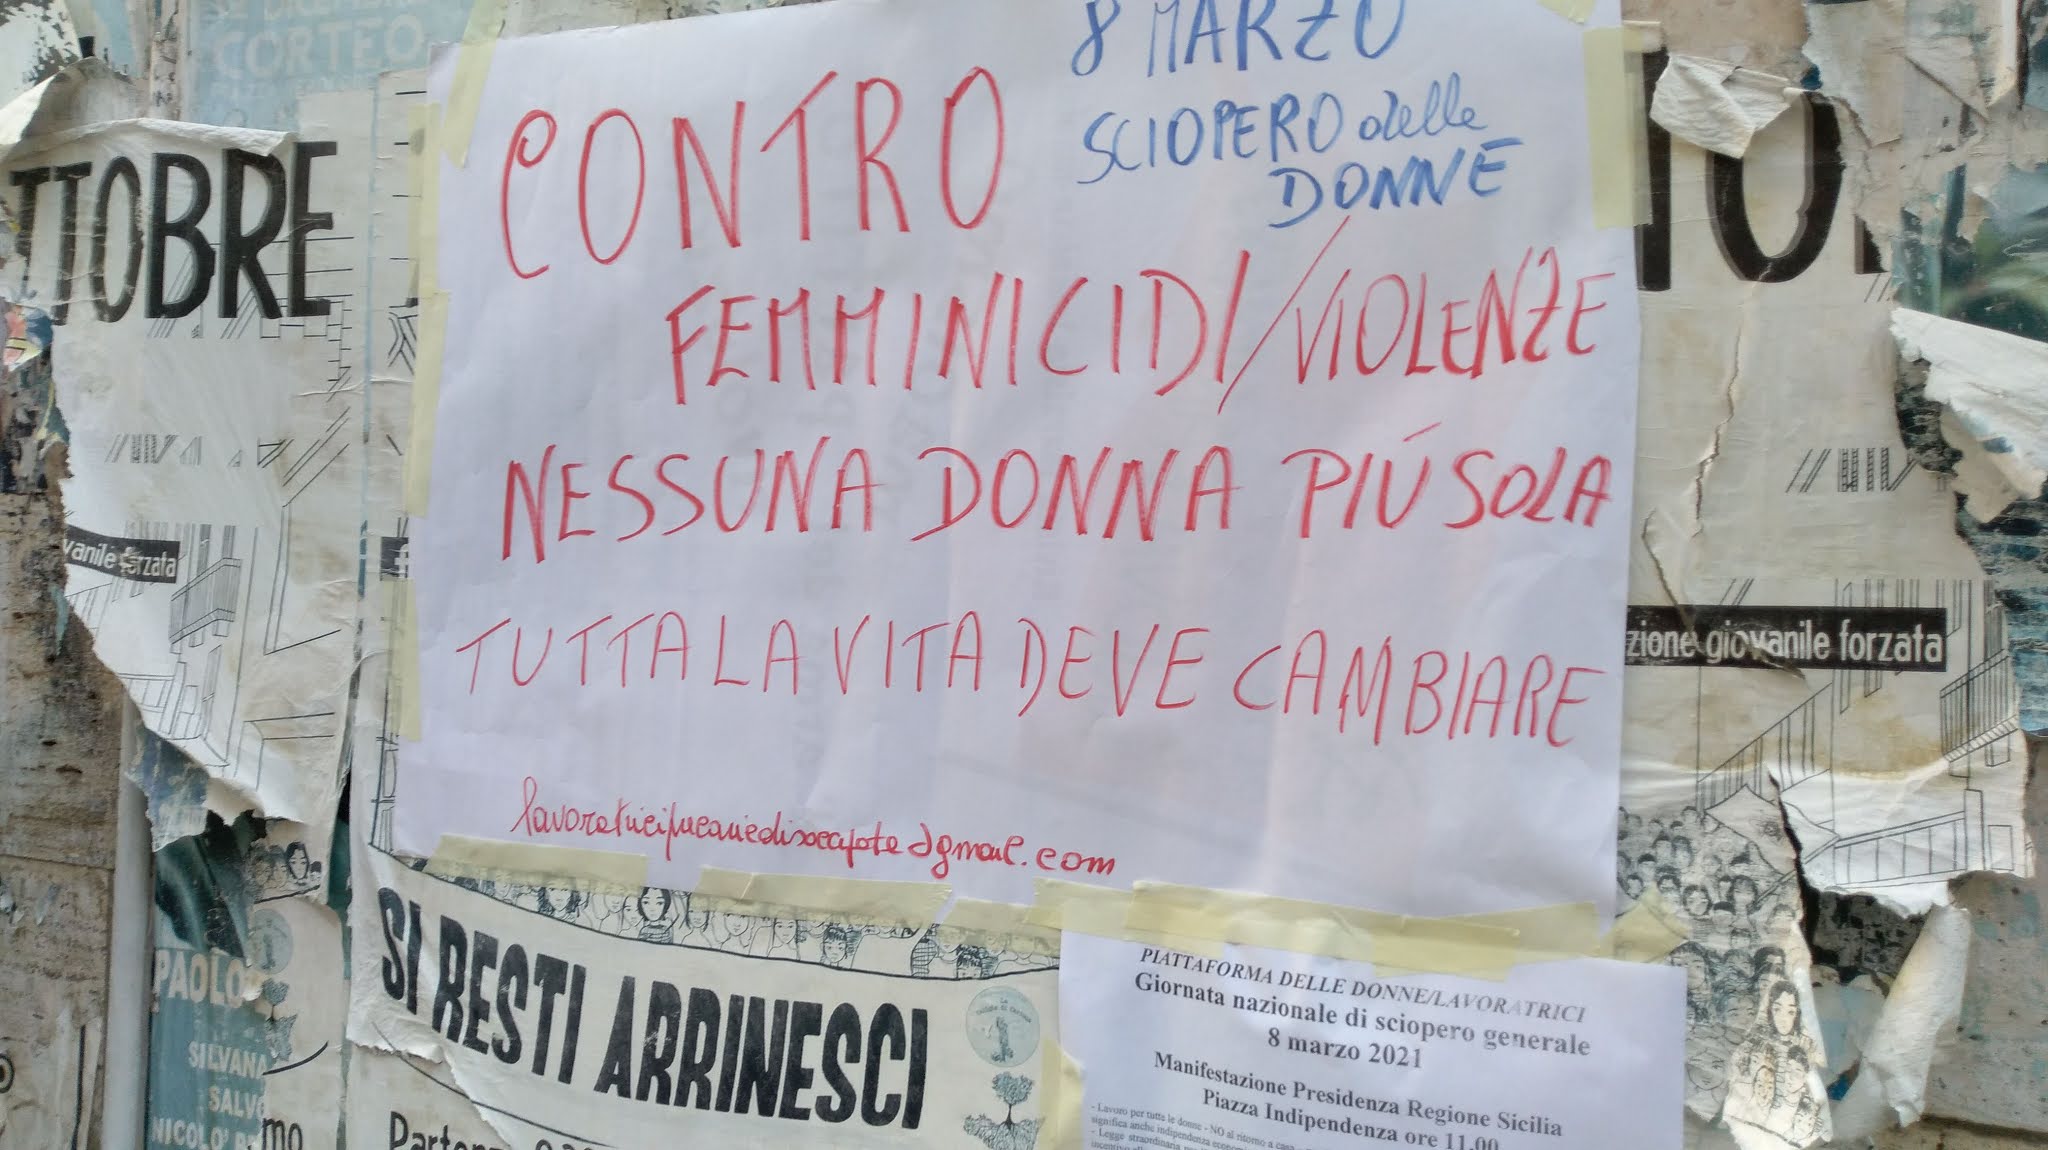 CORTEO
8 MARZO
SCIOPERO delle
DONNE
CONTRO
FEMMINICIDI/VIOLENZE
NESSUNA DONNA PIÚ SOLA
TUTTA LA VITA DEVE CAMBIARE
gmail.com
TTOBRE
vanile forzata
zione giovanile forzata
SI RESTI ARRINESCI
PAOLO
SILVANA
SALVO
NICOLO'
mo
PIATTAFORMA DELLE DONNE/LAVORATRICI
Giornata nazionale di sciopero generale
8 marzo 2021
Manifestazione Presidenza Regione Sicilia
Piazza Indipendenza ore 11,00
- Lavoro per tutte le donne - NO al ritorno a casa
significa anche indipendenza
- Legge straordinaria